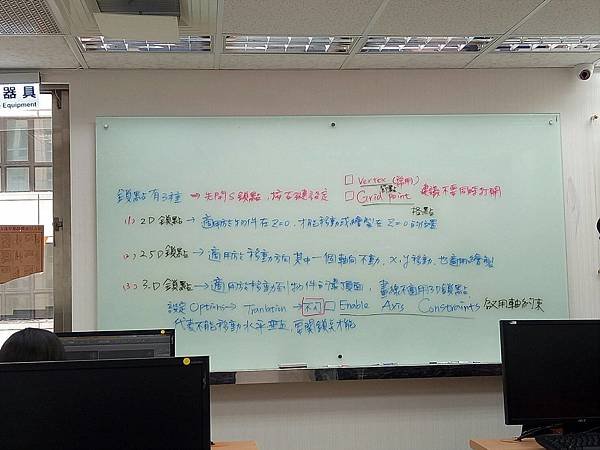 器具
Equipment
鎖點有3種 → 先開S鎖點,按右鍵設定
□ Vertex (常用)
節點
□ Grid Point 建議不要同時打開
格點
(1) 2D鎖點 → 適用於物件在Z=0,才能移動或繪製在Z=0的位置
(2) 2.5D鎖點 → 適用於移動方向其中一個軸向不動,X,Y移動,也適用繪製
(3) 3D鎖點 → 適用於移動到物件的邊頂面,畫線不適用3D鎖點
設定 Options → Tranlation → 不勾 □ Enable Axis Constraints 啟用軸約束
代表不能移動水平垂直,要開鎖點才能